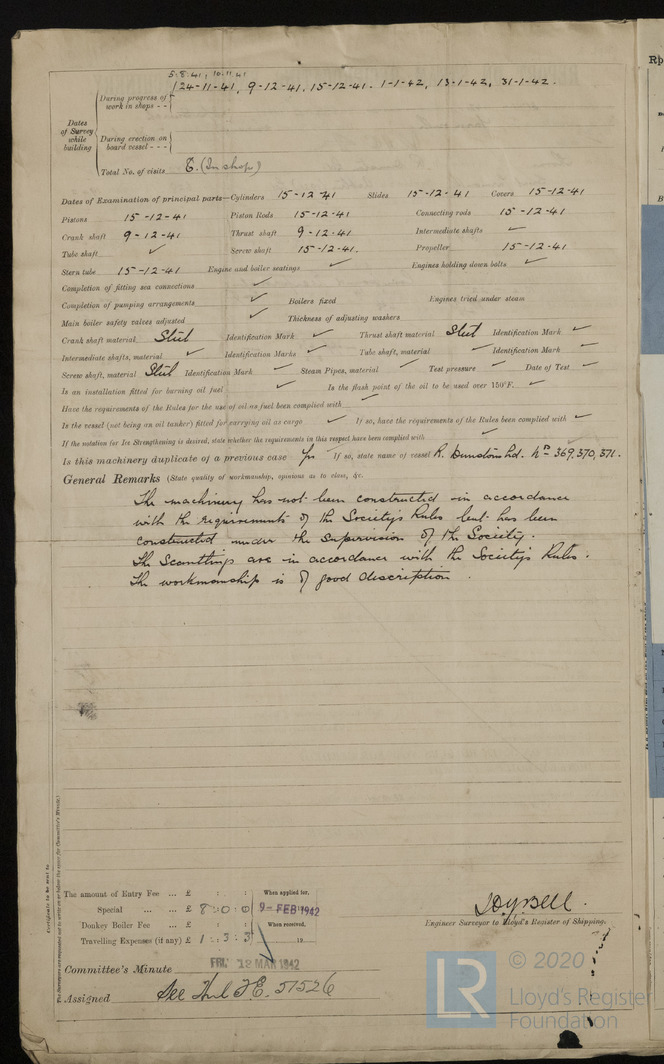 5.8.41, 10.11.41
24-11-41, 9-12-41, 15-12-41. 1-1-42, 13-1-42, 31-1-42.
Dates of Survey while building
During progress of work in shops - -
During erection on board vessel - - -
Total No. of visits 8. (In shop)
Dates of Examination of principal parts—Cylinders 15-12-41 Slides 15-12-41 Covers 15-12-41
Pistons 15-12-41 Piston Rods 15-12-41 Connecting rods 15-12-41
Crank shaft 9-12-41 Thrust shaft 9-12-41 Intermediate shafts ✓
Tube shaft ✓ Screw shaft 15-12-41. Propeller 15-12-41
Stern tube 15-12-41 Engine and boiler seatings ✓ Engines holding down bolts ✓
Completion of fitting sea connections ✓
Completion of pumping arrangements ✓ Boilers fixed Engines tried under steam
Main boiler safety valves adjusted ✓ Thickness of adjusting washers
Crank shaft material Steel Identification Mark ✓ Thrust shaft material Steel Identification Mark ✓
Intermediate shafts, material ✓ Identification Marks ✓ Tube shaft, material ✓ Identification Mark ✓
Screw shaft, material Steel Identification Mark ✓ Steam Pipes, material ✓ Test pressure ✓ Date of Test ✓
Is an installation fitted for burning oil fuel ✓ Is the flash point of the oil to be used over 150°F. ✓
Have the requirements of the Rules for the use of oil as fuel been complied with ✓
Is the vessel (not being an oil tanker) fitted for carrying oil as cargo ✓ If so, have the requirements of the Rules been complied with ✓
If the notation for Ice Strengthening is desired, state whether the requirements in this respect have been complied with ✓
Is this machinery duplicate of a previous case Yes If so, state name of vessel R. Dunston Ld. No 369, 370, 371.
General Remarks (State quality of workmanship, opinions as to class, &c.
The machinery has not been constructed in accordance
with the requirements of the Society's Rules but has been
constructed under the supervision of the Society.
The Scantlings are in accordance with the Society's Rules.
The workmanship is of good description.
Certificate to be sent to
The Surveyors are requested not to write on or below the space for Committee's Minute.
The amount of Entry Fee ... £ : : When applied for,
Special ... ... £ 8 : 0 : 0 9 - FEB 1942
Donkey Boiler Fee ... £ : : When received,
Travelling Expenses (if any) £ 1 : 3 : 3 19
Engineer Surveyor to Lloyd's Register of Shipping.
Committee's Minute FRI. 13 MAR 1942
Assigned See Hul J.E. 51526
© 2020
LR
Lloyd's Register
Foundation